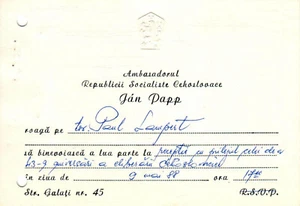 Ambasadorul
Republicii Socialiste Cehoslovace
Ján Papp
roagă pe tov. Paul Lampert
să binevoiască a lua parte la recepția cu prilejul celei de-a
43-a aniversări a eliberării Cehoslovaciei
în ziua de 9 mai 88 ora 17
Str. Galați nr. 45 R.S.V.P.